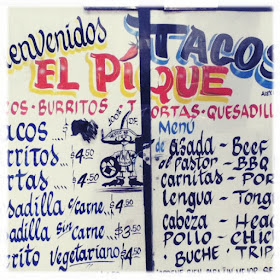 ienvenidos TACOS
EL PIQUE
COS · BURRITOS · T ORTAS · QUESADILL
Menú
acos
rritos $4.50
rtas $4.50
sadilla c/carne $4
sadilla sin carne $3
rrito vegetariano $4
de asada - Beef
al pastor - BBQ
carnitas - POR
lengua - Tong
cabeza - Hea
POLLO - CHIC
· BUCHE - TRIP